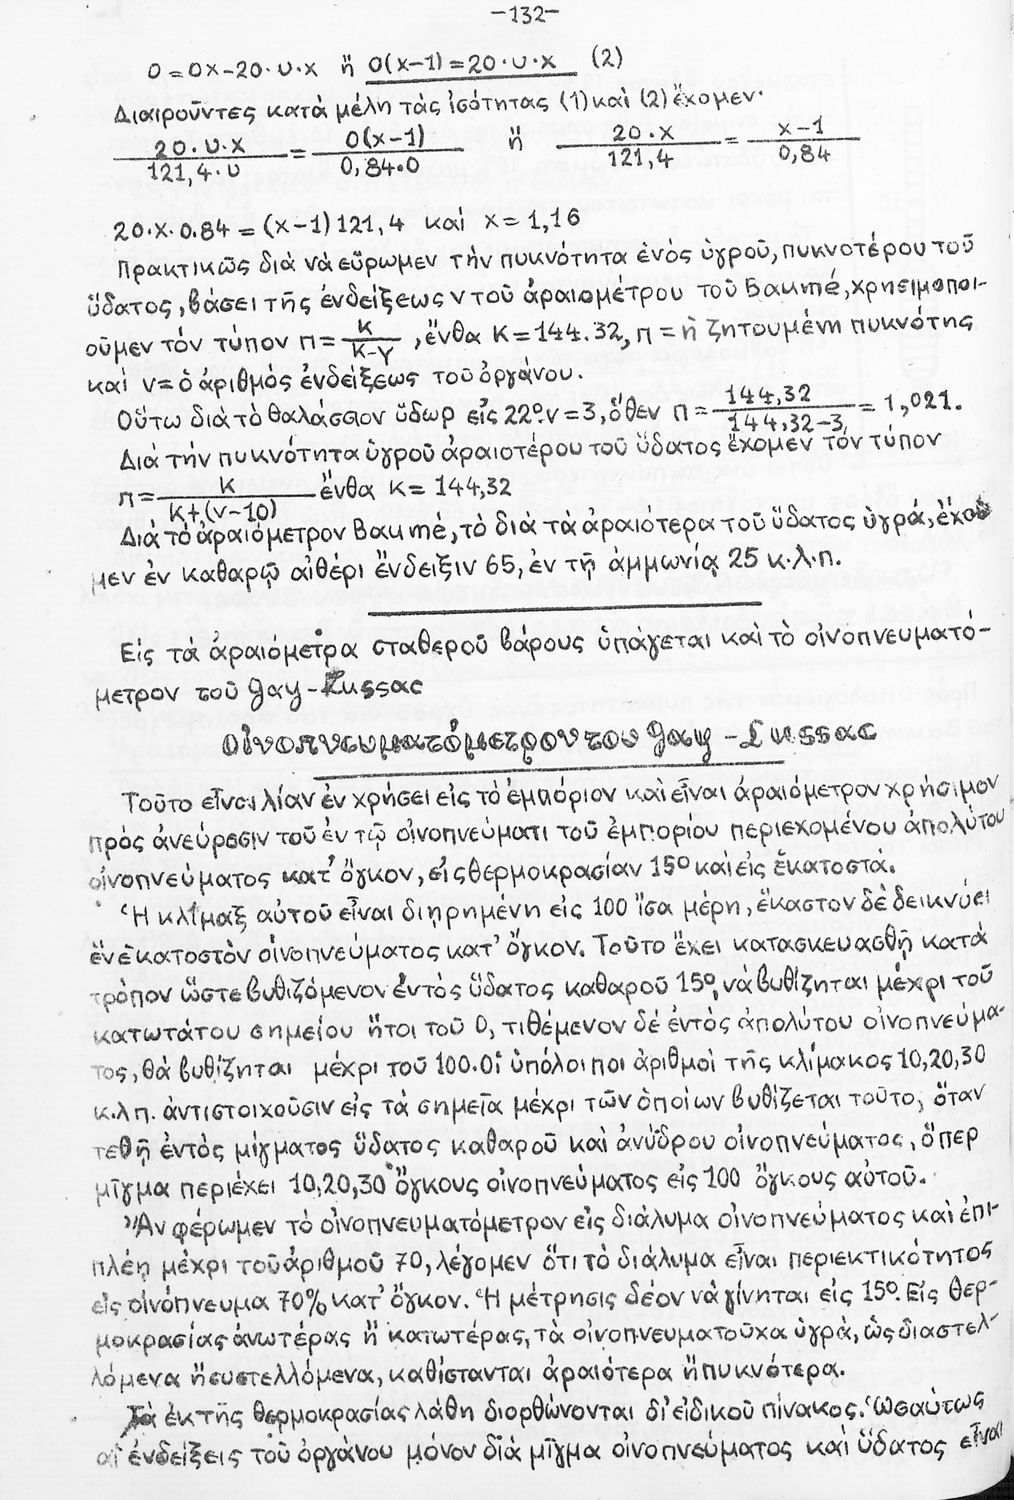 -132-
0=0x-20·υ·x ἤ 0(x-1)=20·υ·x (2)
Διαιροῦντες κατὰ μέλη τὰς ἰσότητας (1) καὶ (2) ἔχομεν·
20·υ·x/121,4·υ = 0(x-1)/0,84·0 ἤ 20·x/121,4 = x-1/0,84
20·x·0.84=(x-1)121,4 καὶ x=1,16
Πρακτικῶς διὰ νὰ εὕρωμεν τὴν πυκνότητα ἑνός ὑγροῦ, πυκνοτέρου τοῦ
ὕδατος, βάσει τῆς ἐνδείξεως ν τοῦ ἀραιομέτρου τοῦ Baumé, χρησιμοποι-
οῦμεν τόν τύπον π=K/K-γ, ἔνθα K=144.32, π=ἡ ζητουμένη πυκνότης
καὶ ν=ὁ ἀριθμός ἐνδείξεως τοῦ ὀργάνου.
Οὕτω διὰ τὸ θαλάσσιον ὕδωρ εἰς 22º.ν=3, ὅθεν π=144,32/144,32-3=1,021.
Διά τὴν πυκνότητα ὑγροῦ ἀραιοτέρου τοῦ ὕδατος ἔχομεν τόν τύπον
π=K/K+(ν-10) ἔνθα K=144,32
Διὰ τὸ ἀραιόμετρον Baumé, τὸ διὰ τὰ ἀραιότερα τοῦ ὕδατος ὑγρά, ἔχου
μεν ἐν καθαρῷ αἰθέρι ἔνδειξιν 65, ἐν τῇ ἀμμωνίᾳ 25 κ.λ.π.
Εἰς τὰ ἀραιόμετρα σταθεροῦ βάρους ὑπάγεται καὶ τὸ οἰνοπνευματό-
μετρον τοῦ Gay-Lussac
Οἰνοπνευματόμετρον του Gay-Lussac
Τοῦτο εἶναι λίαν ἐν χρήσει εἰς τὸ ἐμπόριον καὶ εἶναι ἀραιόμετρον χρήσιμον
πρός ἀνεύρεσιν τοῦ ἐν τῷ οἰνοπνεύματι τοῦ ἐμπορίου περιεχομένου ἀπολύτου
οἰνοπνεύματος κατ' ὄγκον, εἰς θερμοκρασίαν 15º καὶ εἰς ἑκατοστά.
Ἡ κλίμαξ αὐτοῦ εἶναι διῃρημένη εἰς 100 ἴσα μέρη, ἕκαστον δὲ δεικνύει
ἓν ἑκατοστὸν οἰνοπνεύματος κατ' ὄγκον. Τοῦτο ἔχει κατασκευασθῆ κατὰ
τρόπον ὥστε βυθιζόμενον ἐντός ὕδατος καθαροῦ 15º, νὰ βυθίζηται μέχρι τοῦ
κατωτάτου σημείου ἤτοι τοῦ 0, τιθέμενον δέ ἐντός ἀπολύτου οἰνοπνεύμα-
τος, θὰ βυθίζηται μέχρι τοῦ 100. Οἱ ὑπόλοιποι ἀριθμοὶ τῆς κλίμακος 10,20,30
κ.λπ. ἀντιστοιχοῦσιν εἰς τὰ σημεῖα μέχρι τῶν ὁποίων βυθίζεται τοῦτο, ὅταν
τεθῇ ἐντός μίγματος ὕδατος καθαροῦ καὶ ἀνύδρου οἰνοπνεύματος, ὅπερ
μῖγμα περιέχει 10,20,30 ὄγκους οἰνοπνεύματος εἰς 100 ὄγκους αὐτοῦ.
Ἂν φέρωμεν τὸ οἰνοπνευματόμετρον εἰς διάλυμα οἰνοπνεύματος καὶ ἐπι-
πλέῃ μέχρι τοῦ ἀριθμοῦ 70, λέγομεν ὅτι τὸ διάλυμα εἶναι περιεκτικότητος
εἰς οἰνόπνευμα 70% κατ' ὄγκον. Ἡ μέτρησις δέον νὰ γίνηται εἰς 15º. Εἰς θερ-
μοκρασίας ἀνωτέρας ἢ κατωτέρας, τὰ οἰνοπνευματοῦχα ὑγρά, ὡς διαστελ-
λόμενα ἢ συστελλόμενα, καθίστανται ἀραιότερα ἢ πυκνότερα.
Τὰ ἐκ τῆς θερμοκρασίας λάθη διορθώνονται δι' εἰδικοῦ πίνακος. Ὡσαύτως
αἱ ἐνδείξεις τοῦ ὀργάνου μόνον διὰ μῖγμα οἰνοπνεύματος καὶ ὕδατος εἶναι